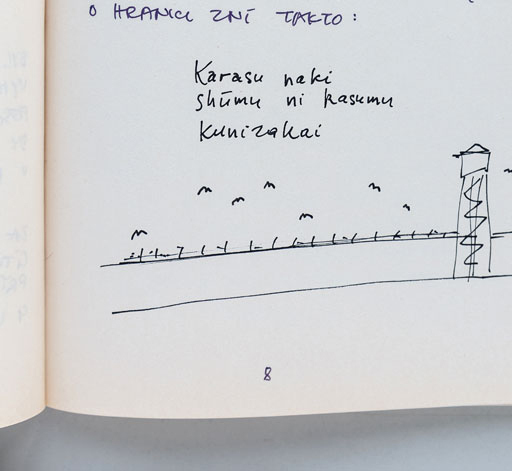 O HRANICI ZNÍ TAKTO:
Karasu naki
shūmu ni kasumu
kunizakai
8